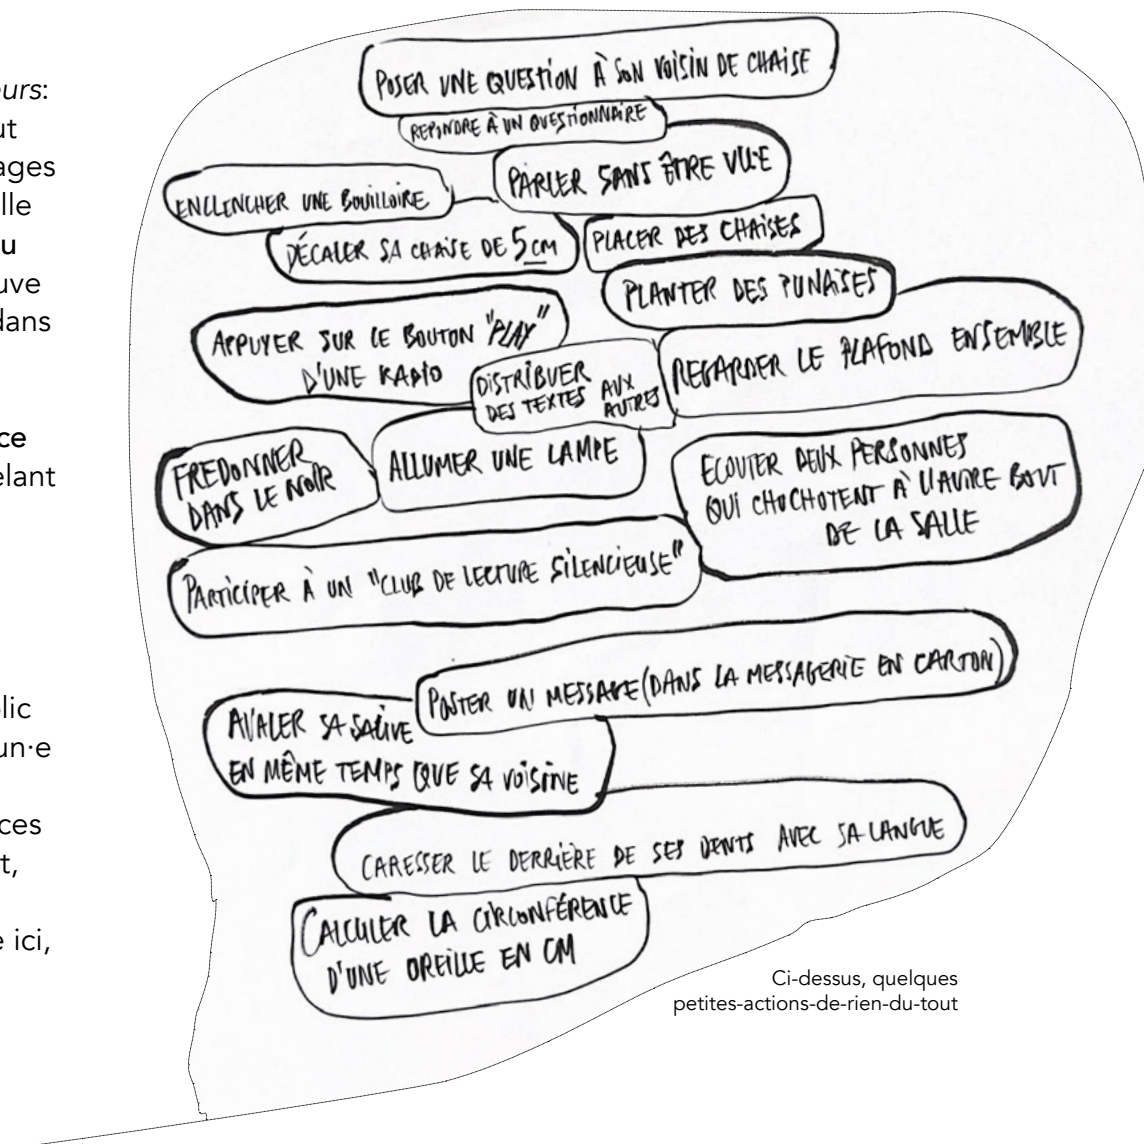 urs:
ut
ages
lle
u
uve
dans
ce
elant
lic
un·e
ces
t,
e ici,
POSER UNE QUESTION À SON VOISIN DE CHAISE
REPONDRE À UN QUESTIONNAIRE
PARLER SANS ÊTRE VU·E
ENCLENCHER UNE BOUILLOIRE
DÉCALER SA CHAISE DE 5 CM
PLACER DES CHAISES
PLANTER DES PUNAISES
APPUYER SUR LE BOUTON "PLAY"
D'UNE RADIO
DISTRIBUER
DES TEXTES AUX
AUTRES
REGARDER LE PLAFOND ENSEMBLE
FREDONNER
DANS LE NOIR
ALLUMER UNE LAMPE
ECOUTER DEUX PERSONNES
QUI CHUCHOTENT À L'AUTRE BOUT
DE LA SALLE
PARTICIPER À UN "CLUB DE LECTURE SILENCIEUSE"
POSTER UN MESSAGE (DANS LA MESSAGERIE EN CARTON)
AVALER SA SALIVE
EN MÊME TEMPS QUE SA VOISINE
CARESSER LE DERRIÈRE DE SES DENTS AVEC SA LANGUE
CALCULER LA CIRCONFÉRENCE
D'UNE OREILLE EN CM
Ci-dessus, quelques
petites-actions-de-rien-du-tout